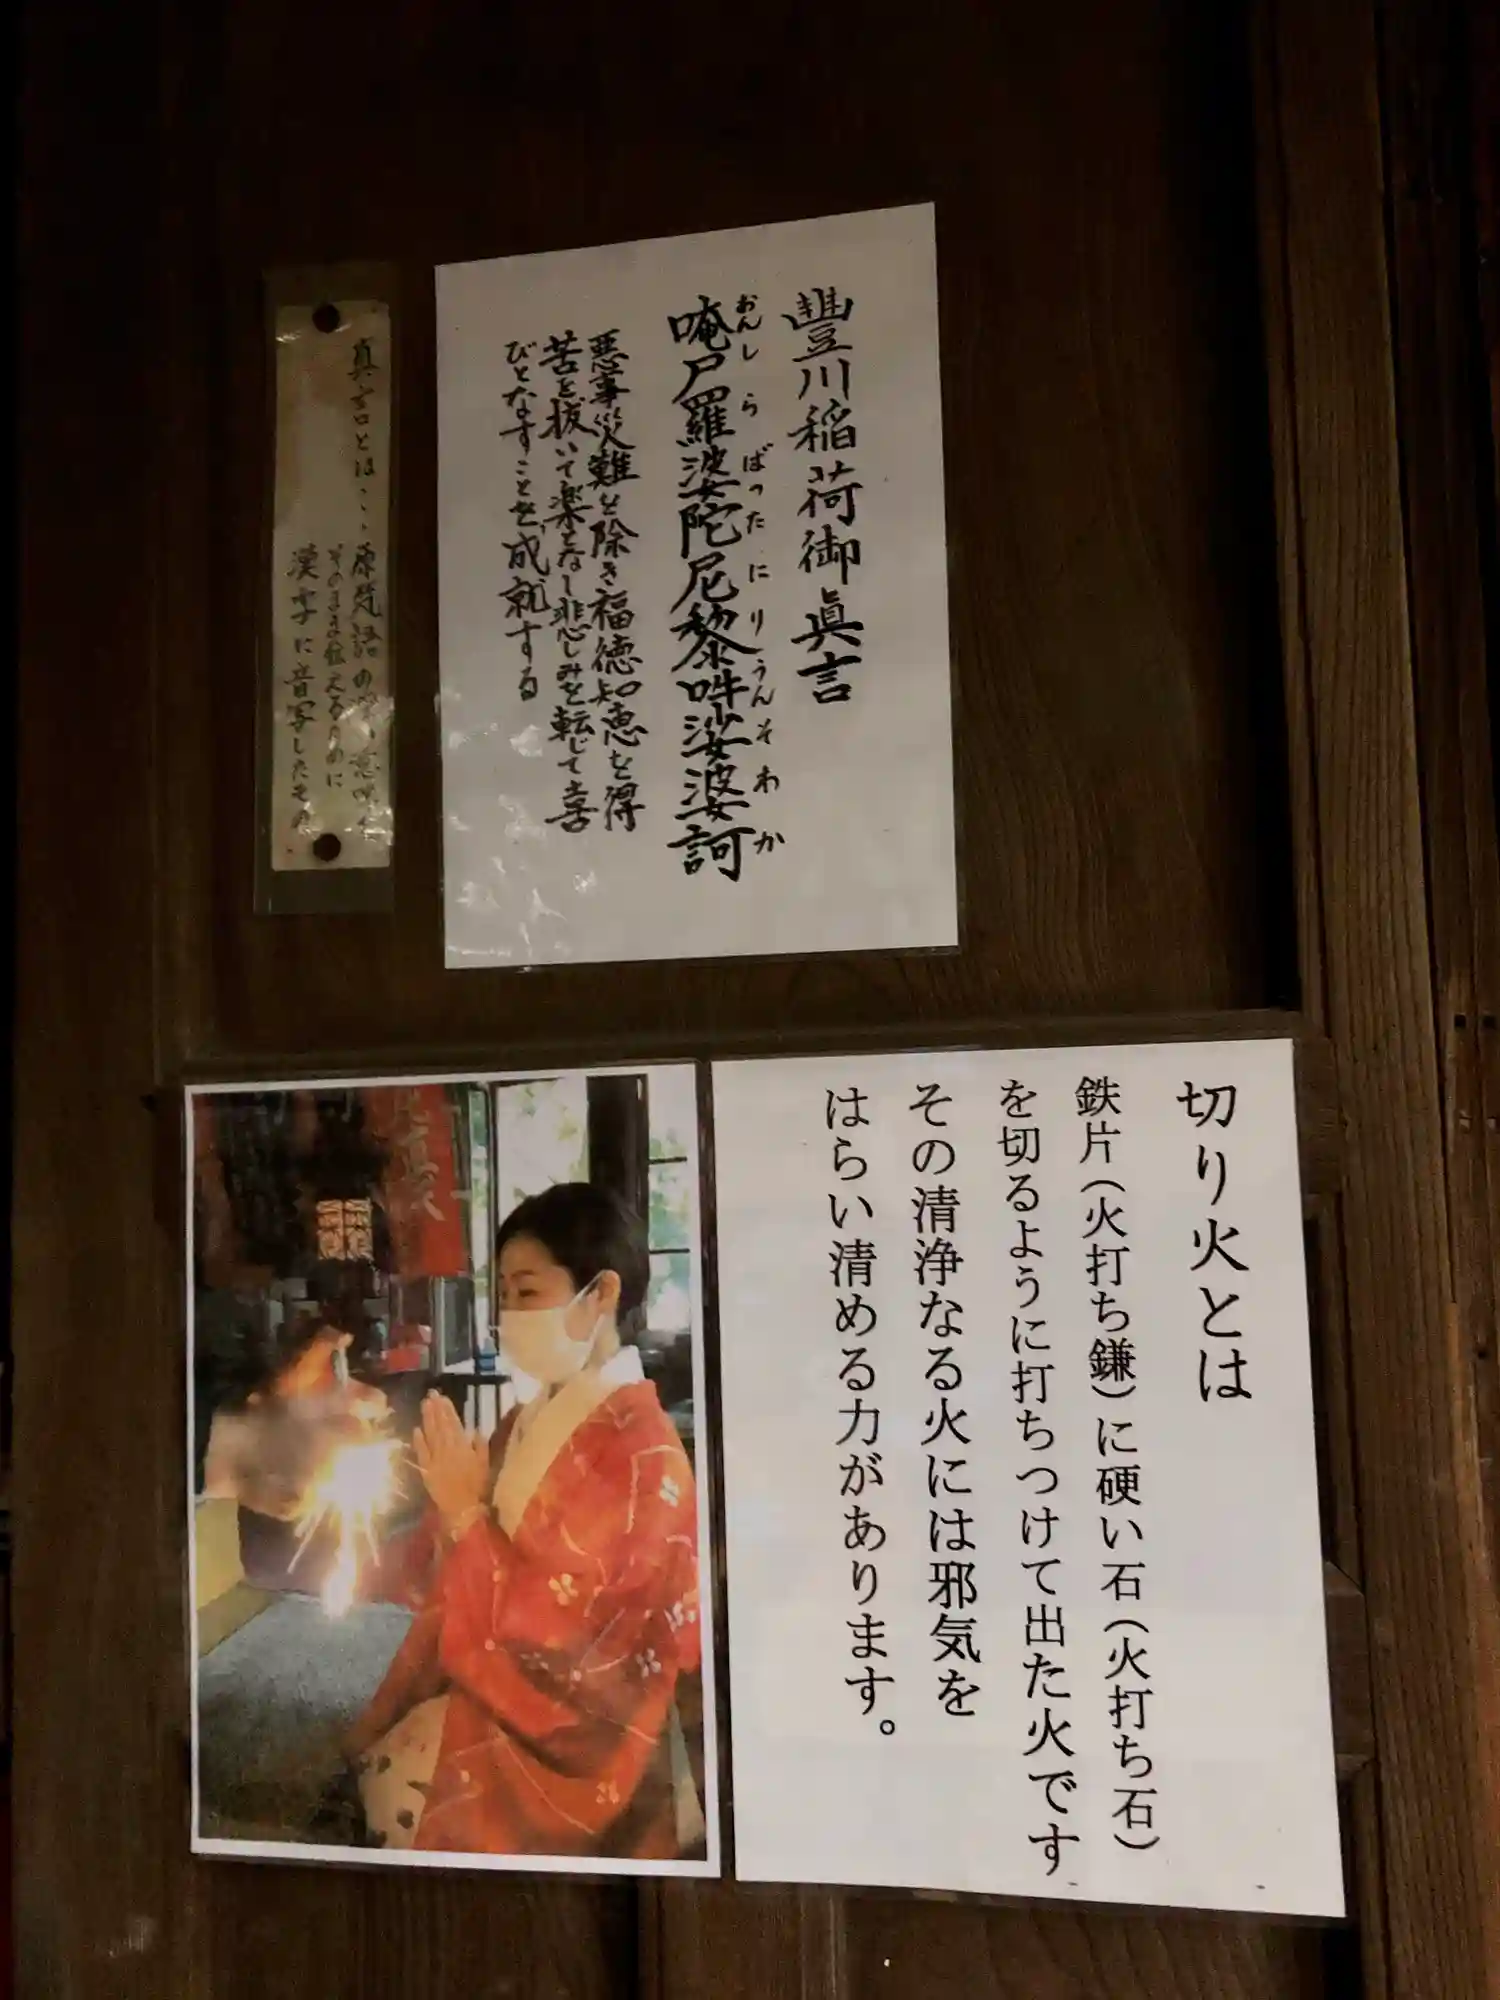 豐川稲荷御眞言
唵尸羅婆陀尼黎吽娑婆訶
おんしらばったにりうんそわか
悪事災難を除き福徳知恵を得
苦を抜いて楽となし悲しみを転じて喜
びとなすことを成就する
真言とは、、原梵語の
そのまま伝えるために
漢字に音写したもの
切り火とは
鉄片(火打ち鎌)に硬い石(火打ち石)
を切るように打ちつけて出た火です
その清浄なる火には邪気を
はらい清める力があります。